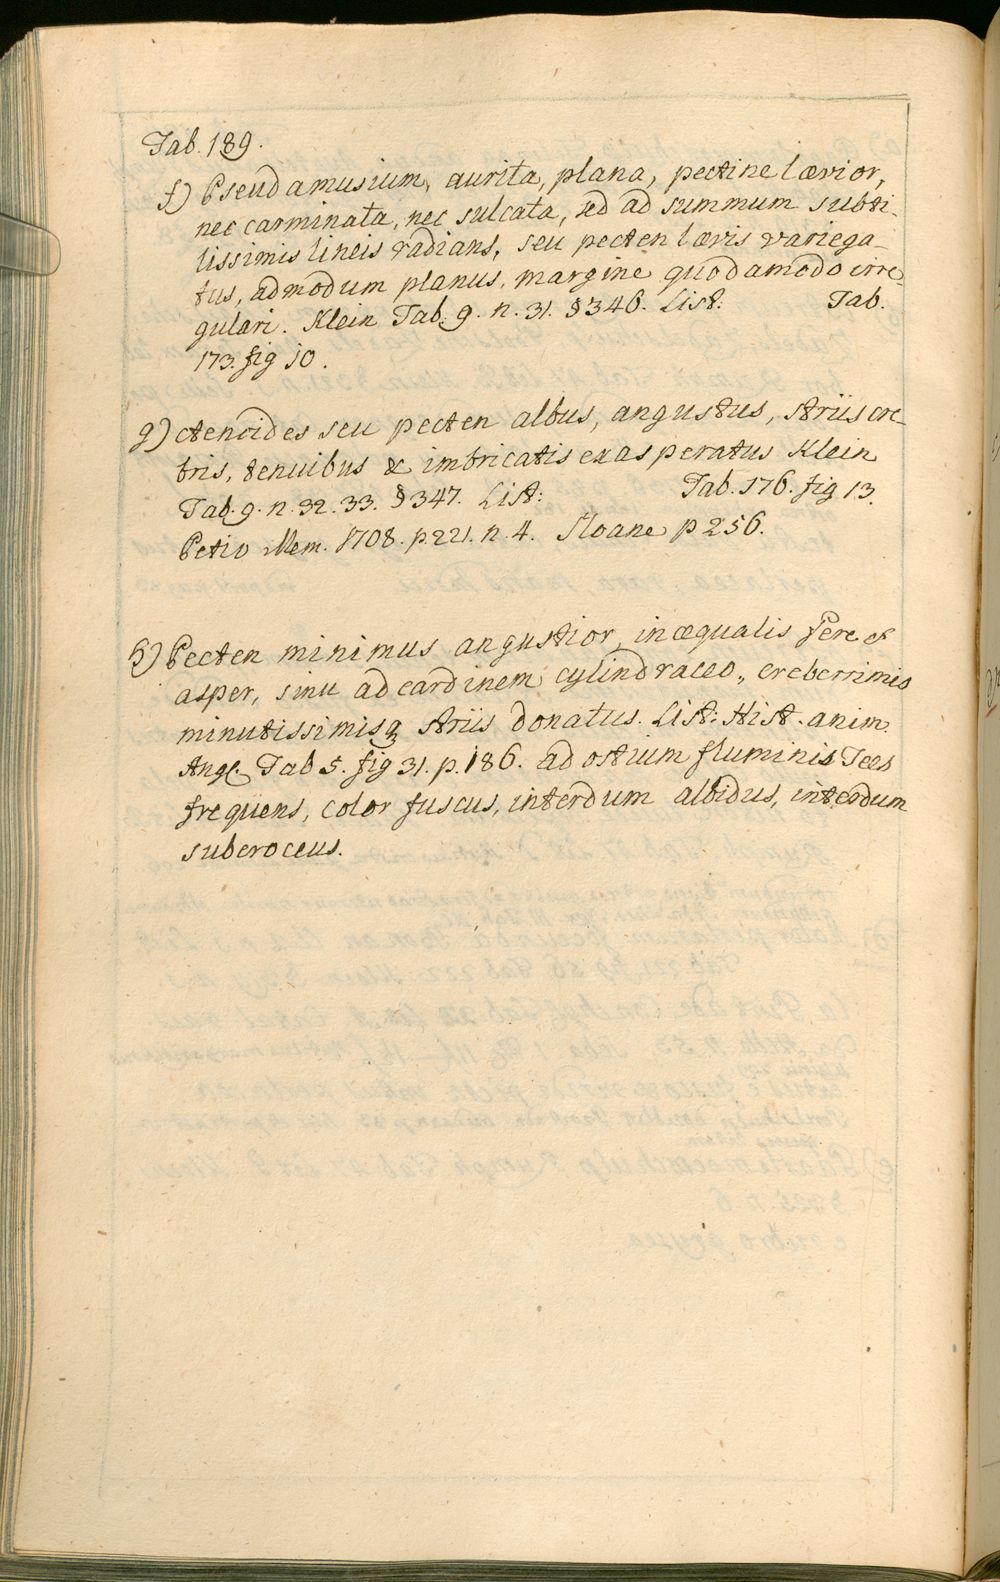 Tab. 189.
f) Pseudamusium, aurita, plana, pectine lævior,
nec carminata, nec sulcata, sed ad summum subti-
lissimis lineis radians, seu pecten lævis variega-
tus, admodum planus, margine quodamodo irre-
gulari. Klein Tab. 9. n. 31. § 346. List: Tab.
173. fig 10.
g) ctenoides seu pecten albus, angustus, striis cre-
bris, tenuibus & imbricatis exasperatus Klein
Tab. 9. n. 32. 33. § 347. List: Tab. 176. fig 13.
Petiv Mem. 1708. p. 221. n. 4. Sloane p 256.
h) Pecten minimus angustior, inæqualis fere et
asper, sinu ad cardinem cylindraceo, creberrimis
minutissimisq striis donatus. List: Hist. anim.
Angl. Tab 5. fig 31. p. 186. ad ostium fluminis Tees
frequens, color fuscus, interdum albidus, interdum
subcroceus.